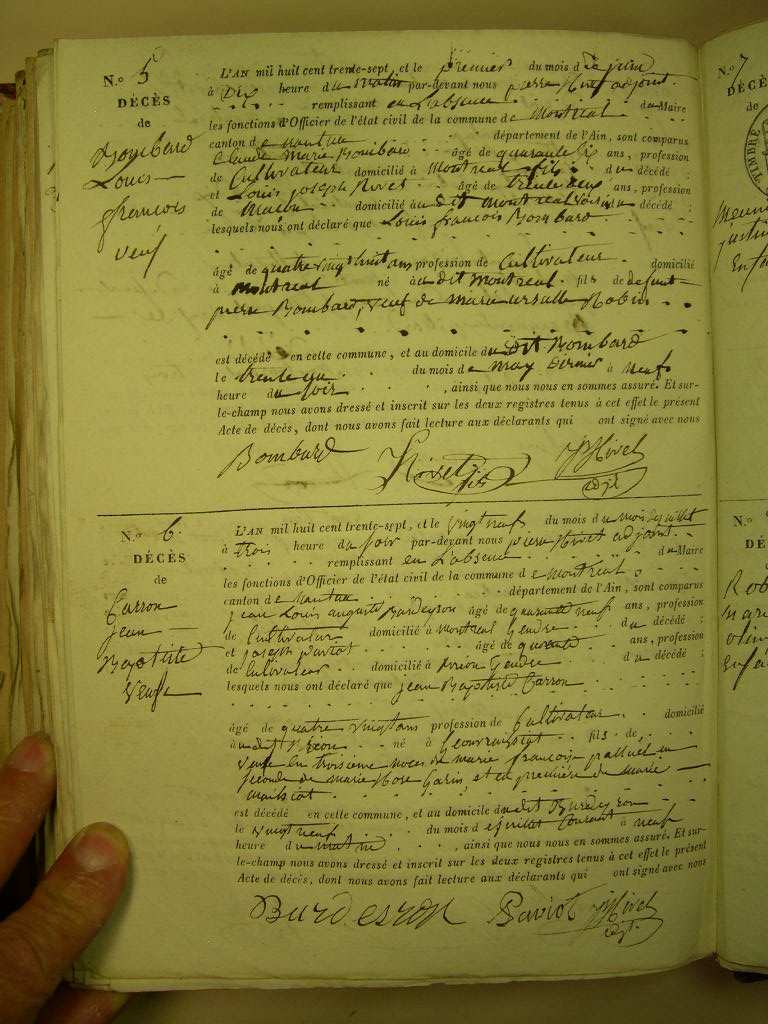 N.º 5
DÉCÈS
de
Bombard
Louis
françois
veuf
L'AN mil huit cent trente-sept, et le premier du mois de juin
à Dix heure du matin par-devant nous pierre Nivet adjoint
remplissant en l'absence du Maire
les fonctions d'Officier de l'état civil de la commune de Montréal
canton de nantua département de l'Ain, sont comparus
Claude Marie Bombard âgé de quarante six ans, profession
de Cultivateur domicilié à Montreal fils du décédé ;
et Louis joseph Nivet âgé de trente deux ans, profession
de Maçon domicilié au dit montreal voisin du décédé ;
lesquels nous ont déclaré que Louis françois Bombard
âgé de quatre vingt huit ans profession de Cultivateur domicilié
à montreal né au dit montreal fils de défunt
pierre Bombard, veuf de marie ursulle Robin
est décédé en cette commune, et au domicile du dit Bombard
le trente un du mois de may dernier à neuf
heure du soir, ainsi que nous nous en sommes assuré. Et sur-
le-champ nous avons dressé et inscrit sur les deux registres tenus à cet effet le présent
Acte de décès, dont nous avons fait lecture aux déclarants qui ont signé avec nous
Bombard Nivet fils Nivet
adjt
N.º 6.
DÉCÈS
de
Carron
jean
Baptiste
veuf
L'AN mil huit cent trente-sept, et le vingt neuf du mois du mois de juillet
à trois heure du soir par-devant nous pierre Nivet adjoint
remplissant en l'absence du Maire
les fonctions d'Officier de l'état civil de la commune de Montreal
canton de Nantua département de l'Ain, sont comparus
jean Louis auguste Burdeyron âgé de quarante neuf ans, profession
de Cultivateur domicilié à Montreal Gendre du décédé ;
et joseph paviot âgé de quarante ans, profession
de Cultivateur domicilié à Gendre du décédé ;
lesquels nous ont déclaré que jean Baptiste Carron
âgé de quatre vingt ans profession de Cultivateur domicilié
au dit né à fils de
veuf en troisième noces de marie françoise palluel en
seconde de marie Rose Garin, et en première de marie
est décédé en cette commune, et au domicile du dit Burdeyron
le vingt neuf du mois de juillet courant à neuf
heure du matin, ainsi que nous nous en sommes assuré. Et sur-
le-champ nous avons dressé et inscrit sur les deux registres tenus à cet effet le présent
Acte de décès, dont nous avons fait lecture aux déclarants qui ont signé avec nous
Burdesron Paviot Nivet
adjt
N.º 7
DÉCÈS
de
TIMBRE
N.º
DÉ